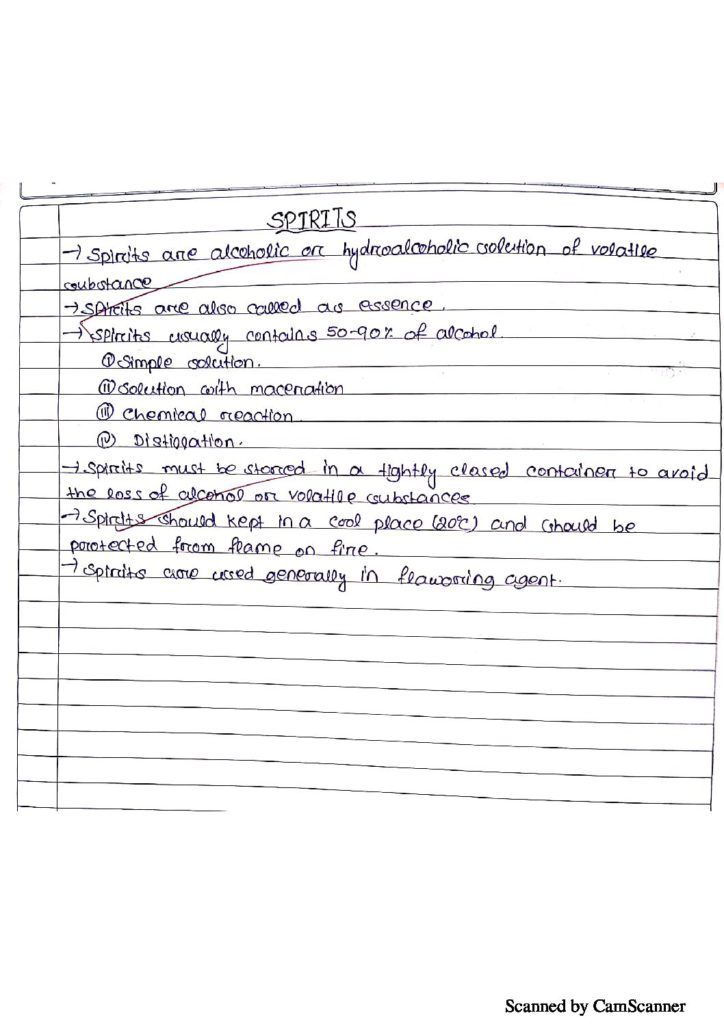 SPIRITS
→ Spirits are alcoholic or hydroalcoholic solution of volatile
substance
→ Spirits are also called as essence.
→ Spirits usually contains 50-90% of alcohol.
(i) Simple solution.
(ii) Solution with maceration
(iii) Chemical reaction
(iv) Distillation.
→ Spirits must be stored in a tightly closed container to avoid
the loss of alcohol or volatile substances
→ Spirits should kept in a cool place (20°C) and should be
porotected from flame on fire.
→ Spirits are used generally in flaworing agent.
Scanned by CamScanner